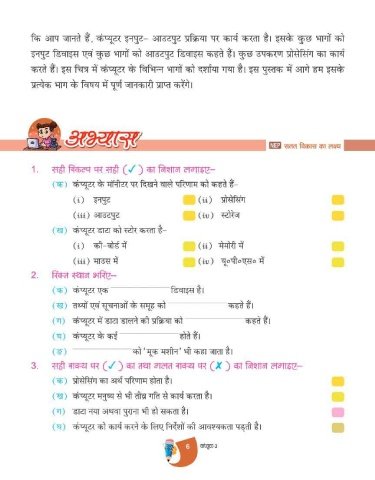 कि आप जानते हैं, कंप्यूटर इनपुट– आउटपुट प्रक्रिया पर कार्य करता है। इसके कुछ भागों को
इनपुट डिवाइस एवं कुछ भागों को आउटपुट डिवाइस कहते हैं। कुछ उपकरण प्रोसेसिंग का कार्य
करते हैं। इस चित्र में कंप्यूटर के विभिन्न भागों को दर्शाया गया है। इस पुस्तक में आगे हम इसके
प्रत्येक भाग के विषय में पूर्ण जानकारी प्राप्त करेंगे।
अभ्यास
NEP सतत विकास का लक्ष्य
1. सही विकल्प पर सही (✓) का निशान लगाइए–
(क) कंप्यूटर के मॉनीटर पर दिखने वाले परिणाम को कहते हैं–
(i) इनपुट (ii) प्रोसेसिंग
(iii) आउटपुट (iv) स्टोरेज
(ख) कंप्यूटर डाटा को स्टोर करता है–
(i) की-बोर्ड में (ii) मेमोरी में
(iii) माउस में (iv) यू०पी०एस० में
2. रिक्त स्थान भरिए–
(क) कंप्यूटर एक डिवाइस है।
(ख) तथ्यों एवं सूचनाओं के समूह को कहते हैं।
(ग) कंप्यूटर में डाटा डालने की प्रक्रिया को कहते हैं।
(घ) कंप्यूटर के कई होते हैं।
(ङ) को 'मूक मशीन' भी कहा जाता है।
3. सही वाक्य पर (✓) का तथा गलत वाक्य पर (✗) का निशान लगाइए–
(क) प्रोसेसिंग का अर्थ परिणाम होता है।
(ख) कंप्यूटर मनुष्य से भी तीव्र गति से कार्य करता है।
(ग) डाटा नया अथवा पुराना भी हो सकता है।
(घ) कंप्यूटर को कार्य करने के लिए निर्देशों की आवश्यकता पड़ती है।
6 कंप्यूटर-3